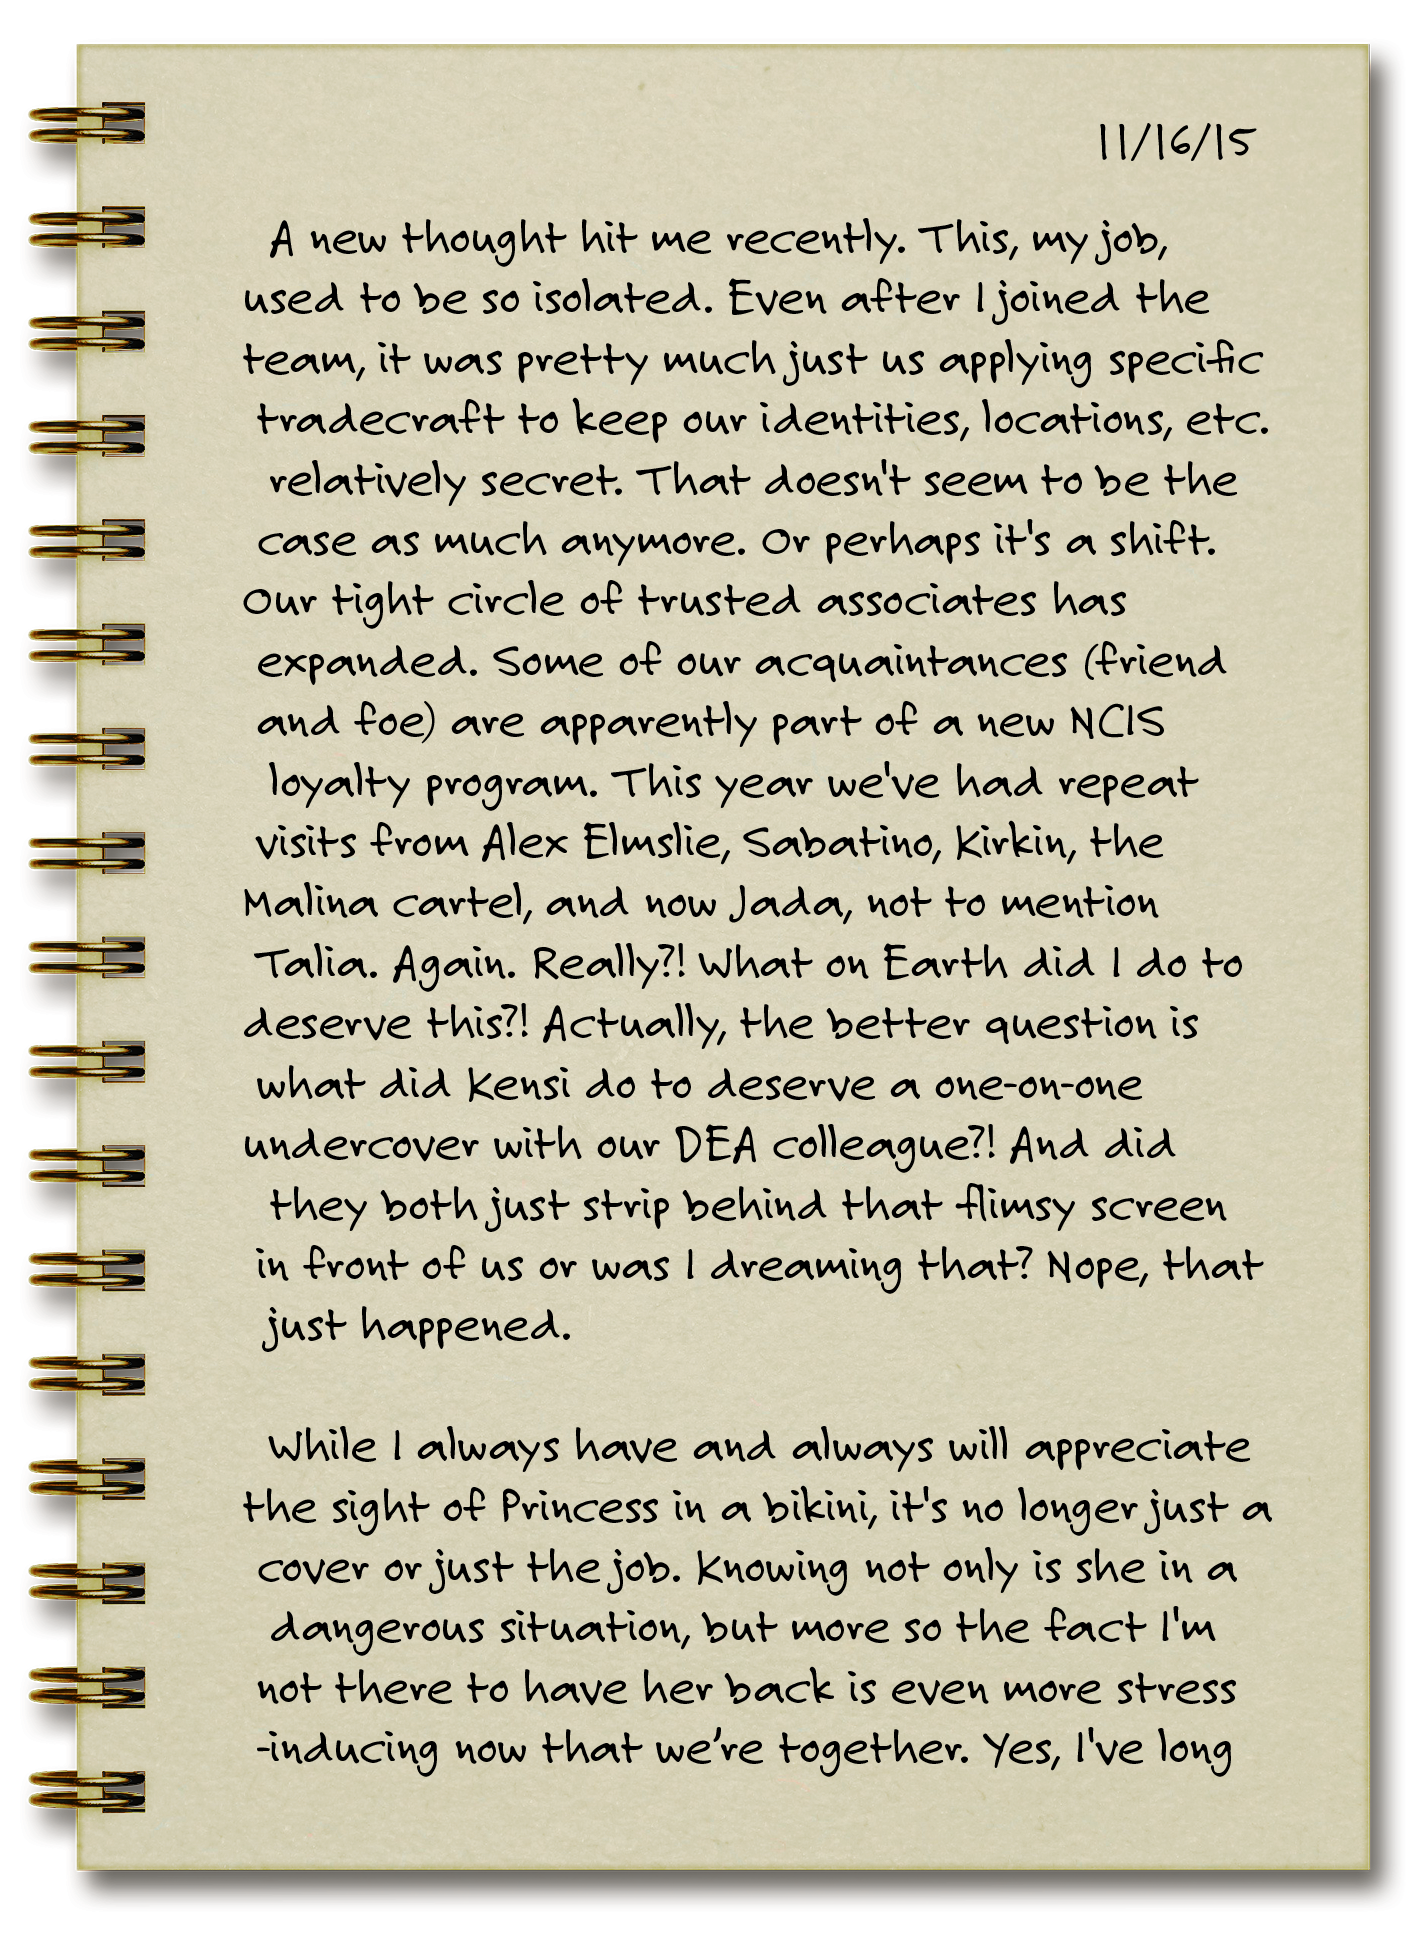 11/16/15
A new thought hit me recently. This, my job,
used to be so isolated. Even after I joined the
team, it was pretty much just us applying specific
tradecraft to keep our identities, locations, etc.
relatively secret. That doesn't seem to be the
case as much anymore. Or perhaps it's a shift.
Our tight circle of trusted associates has
expanded. Some of our acquaintances (friend
and foe) are apparently part of a new NCIS
loyalty program. This year we've had repeat
visits from Alex Elmslie, Sabatino, Kirkin, the
Malina cartel, and now Jada, not to mention
Talia. Again. Really?! What on Earth did I do to
deserve this?! Actually, the better question is
what did Kensi do to deserve a one-on-one
undercover with our DEA colleague?! And did
they both just strip behind that flimsy screen
in front of us or was I dreaming that? Nope, that
just happened.
While I always have and always will appreciate
the sight of Princess in a bikini, it's no longer just a
cover or just the job. Knowing not only is she in a
dangerous situation, but more so the fact I'm
not there to have her back is even more stress
-inducing now that we’re together. Yes, I've long